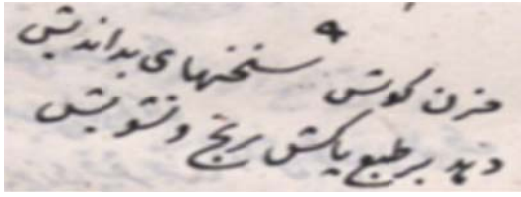 مزن گوش سخنهای بداندیش
دهد بر طبع پاکش رنج و تشویش